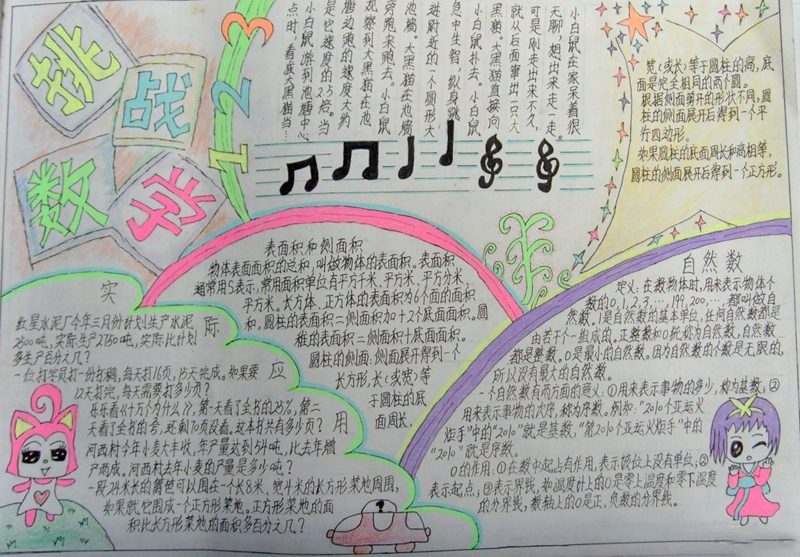 挑战
数学
1 2 3
小白鼠在家呆着很
无聊,想出来走一走。
可是刚走出来不久,
就从后面窜出一只大
黑猫。大黑猫直接向
小白鼠扑去。小白鼠
急中生智,纵身跳
进附近的一个圆形大
池塘。大黑猫在池塘
旁跑来跑去。小白鼠
观察到大黑猫在池
塘边跑的速度大约
是它速度的2.5倍。当
小白鼠游到池塘中心
点时,看底大黑猫当…
宽(或长)等于圆柱的高,底
面是完全相同的两个圆。
根据侧面剪开的形状不同,圆
柱的侧面展开后得到一个平
行四边形。
如果圆柱的底面周长和高相等,
圆柱的侧面展开后得到一个正方形。
表面积和侧面积
物体表面面积的总和,叫做物体的表面积。表面积
通常用S表示,常用面积单位有平方千米,平方米,平方分米,
平方米。长方体、正方体的表面积为6个面的面积
和。圆柱的表面积=侧面积加+2个底面面积。圆
锥的表面积=侧面积+底面面积。
圆柱的侧面:侧面展开得到一个
长方形,长(或宽)等
于圆柱的底
面周长,
自然数
定义:在数物体时,用来表示物体个
数的0,1,2,3…,199,200,…,都叫做自
然数。1是自然数的基本单位,任何自然数都是
由若干个一组成的。正整数和0统称为自然数,自然数
都是整数。0是最小的自然数。因为自然数的个数是无限的,
所以没有最大的自然数。
一个自然数有两方面的意义:①用来表示事物的多少,称为基数;②
用来表示事物的次序,称为序数。例如:“2010个亚运火
炬手”中的“2010”就是基数,“第2010个亚运火炬手”中的
“2010”就是序数。
0的作用:①在数中起占位作用,表示该位上没有单位;②
表示起点;③表示界线,如温度计上的0是零上温度和零下温度
的分界线,数轴上的0是正、负数的分界线。
实际应用
红星水泥厂今年三月份计划生产水泥
2500吨,实际生产2750吨,实际比计划
多生产百分之几?
一位打字员打一份书稿,每天打16页,15天完成。如果要
12天打完,每天需要打多少页?
乐乐看《十万个为什么?》,第一天看了全书的25%,第二
河西村今年小麦大丰收,年产量达到54吨,比去年增
产两成。河西村去年小麦的产量是多少吨?
一段24米长的篱笆可以围在一个长8米,宽4米的长方形菜地周围,
如果就它围成一个正方形菜地。正方形菜地的面
积比长方形菜地的面积多百分之几?